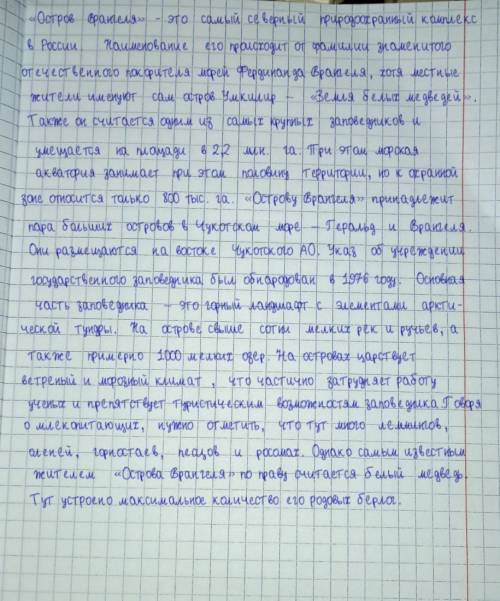 «Остров Врангеля» - это самый северный природоохранный комплекс
в России. Наименование его происходит от фамилии знаменитого
отечественного покорителя морей Фердинанда Врангеля, хотя местные
жители именуют сам остров Умкилир - «Земля белых медведей».
Также он считается одним из самых крупных заповедников и
умещается на площади в 2,2 млн. га. При этом морская
акватория занимает при этом половину территории, но к охранной
зоне относится только 800 тыс. га. «Острову Врангеля» принадлежит
пара больших островов в Чукотском море - Геральд и Врангеля.
Они размещаются на востоке Чукотского АО. Указ об учреждении
государственного заповедника был обнародован в 1976 году. Основная
часть заповедника - это горный ландшафт с элементами аркти-
ческой тундры. На острове свыше сотни мелких рек и ручьев, а
также примерно 1000 мелких озер. На островах царствует
ветреный и морозный климат, что частично затрудняет работу
ученых и препятствует туристическим возможностям заповедника. Говоря
о млекопитающих, нужно отметить, что тут много леммингов,
оленей, горностаев, песцов и росомах. Однако самым известным
жителем «Острова Врангеля» по праву считается белый медведь.
Тут устроено максимальное количество его родовых берлог.